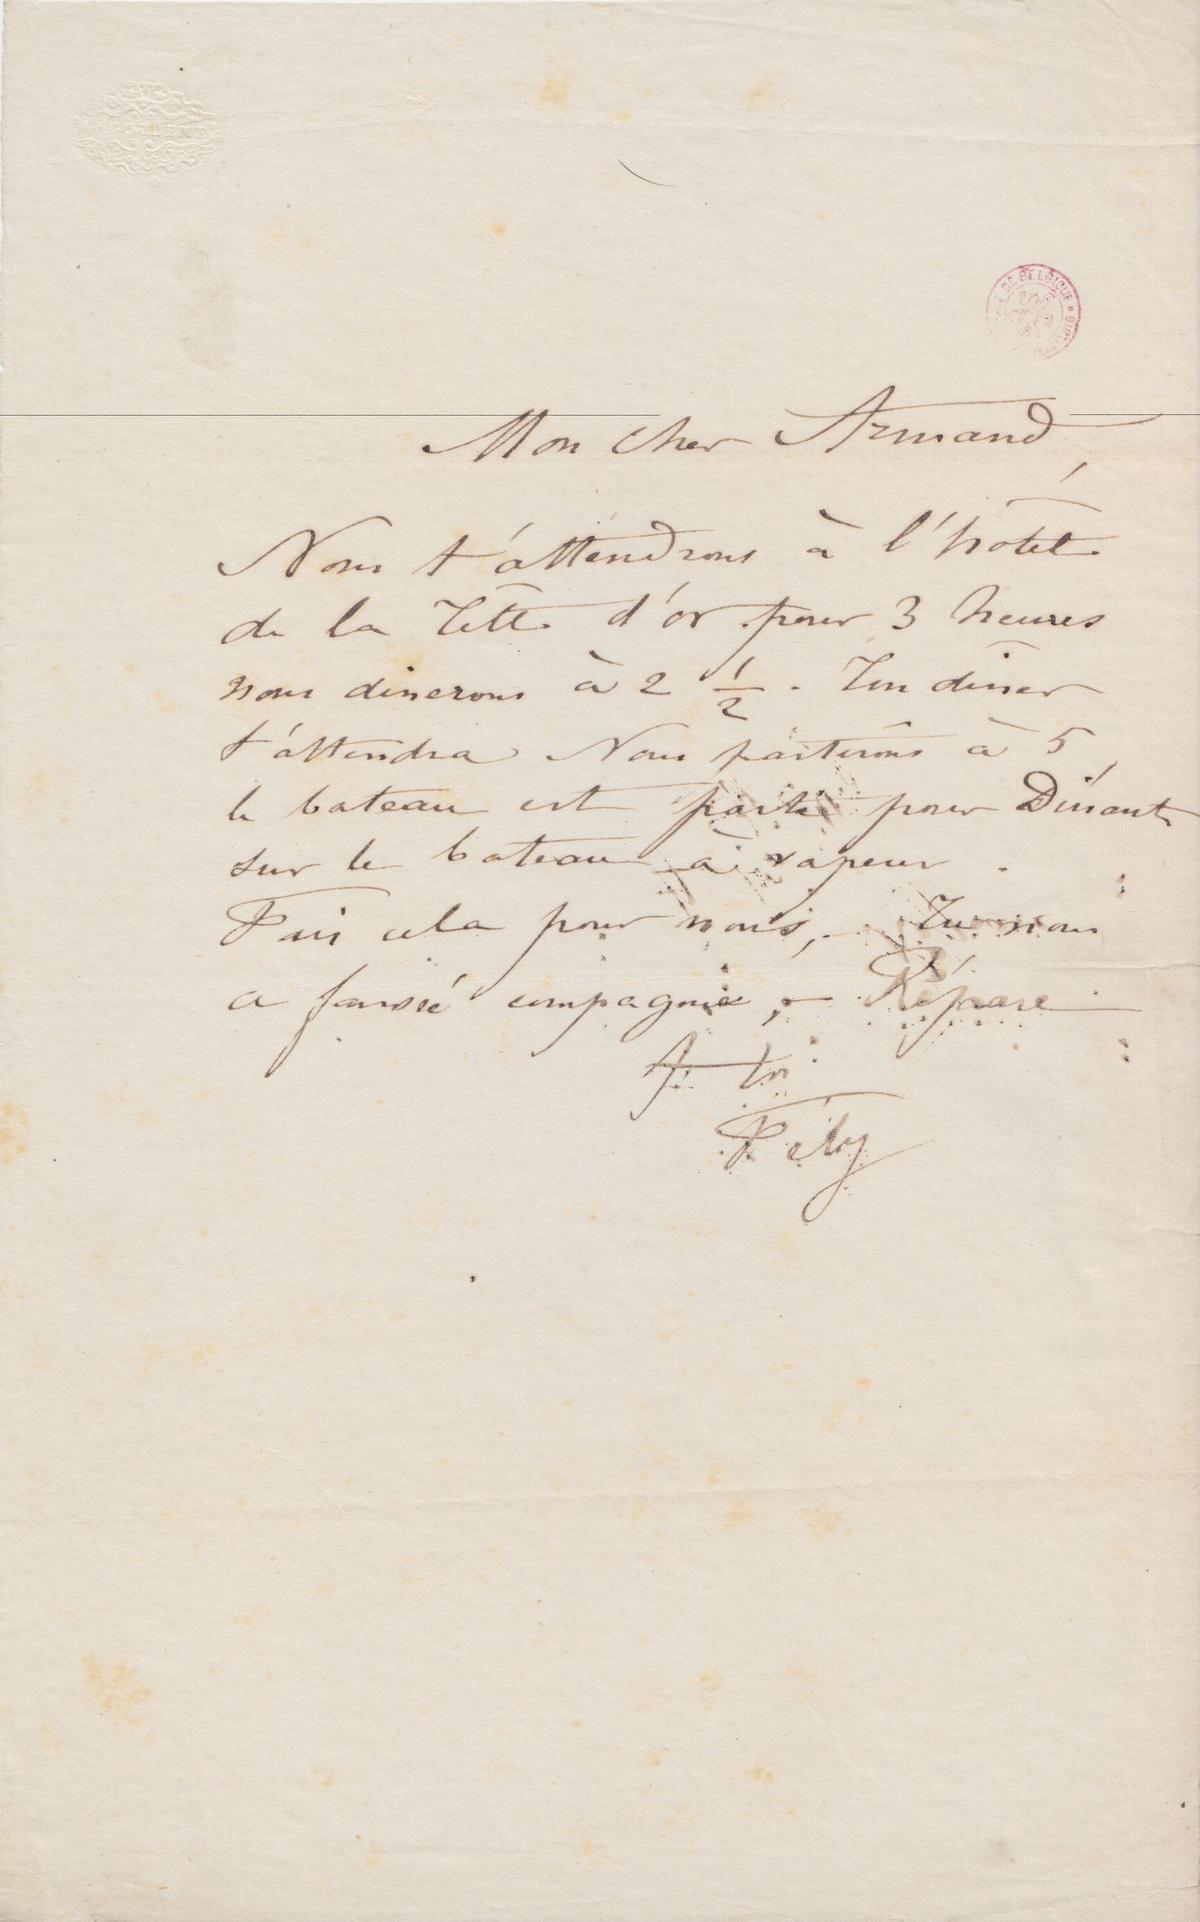 DE BELGIQUE
Mon cher Armand,
Nous t'attendrons à l'hôtel
de la Tête d'or pour 3 heures
nous dinerons à 2 1/2. Ton diner
t'attendra Nous partirons à 5,
le bateau est parti pour Dinant
sur le bateau à vapeur.
Fais cela pour nous, - Tu nous
a faussé compagnie, - Répare
A toi
Fély